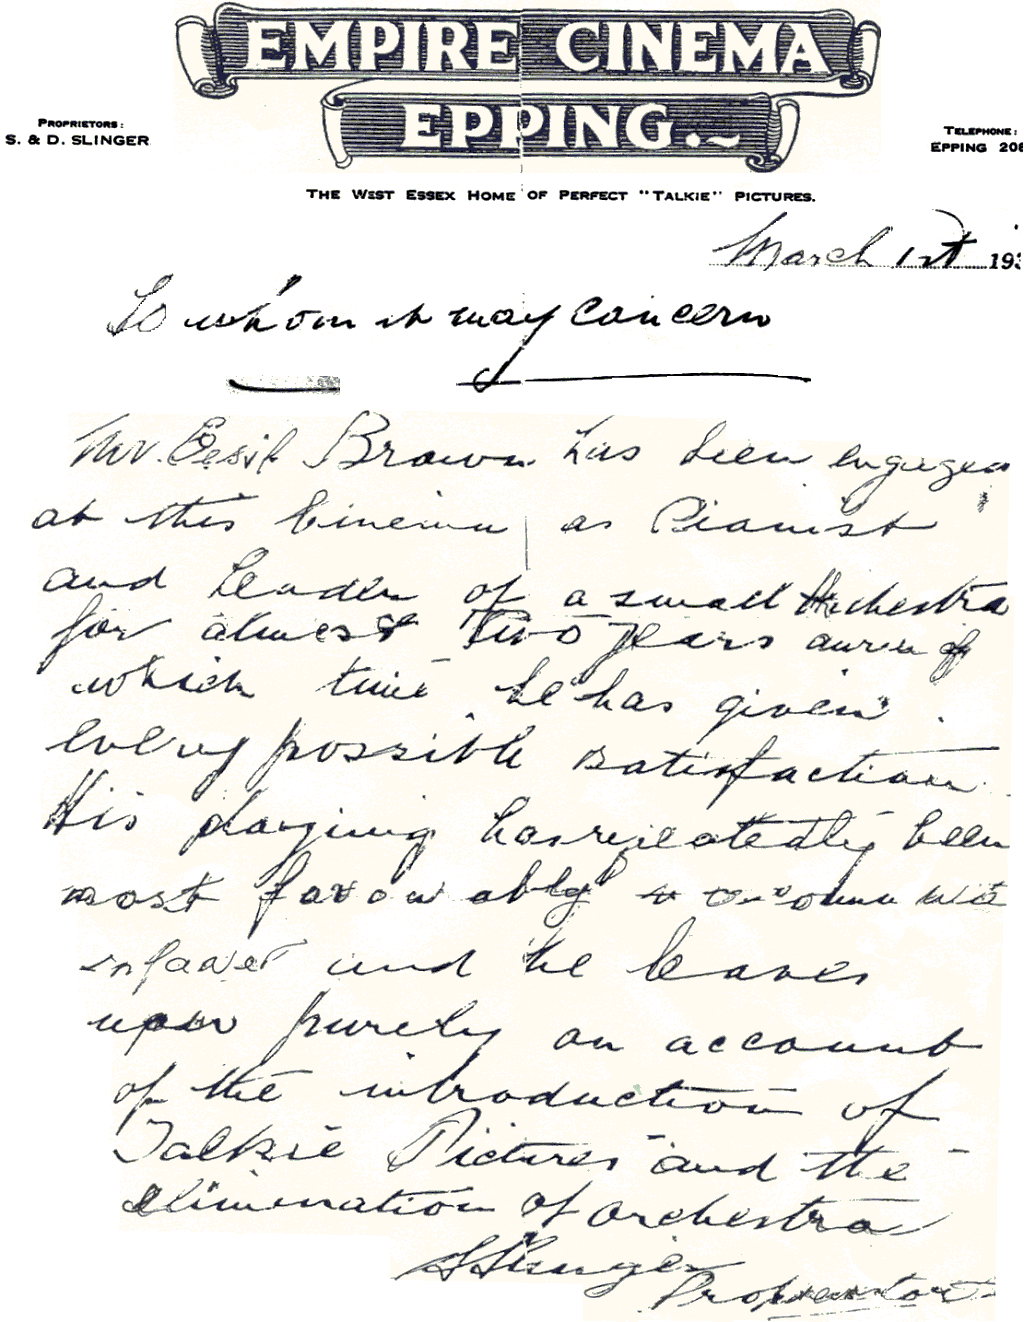 EMPIRE CINEMA
EPPING.~
PROPRIETORS:
S. & D. SLINGER
TELEPHONE:
EPPING 206
THE WEST ESSEX HOME OF PERFECT "TALKIE" PICTURES.
March 1st 193
To whom it may concern
Mr. Brown has been engaged
at this Cinema as Pianist
and Leader of a small Orchestra
for almost Two years
which time he has given
every possible satisfaction
His playing has repeatedly been
most favourably
and he leaves
upon purely on account
of the introduction of
Talkie Pictures and the
elimination of orchestra
S Slinger
Proprietor